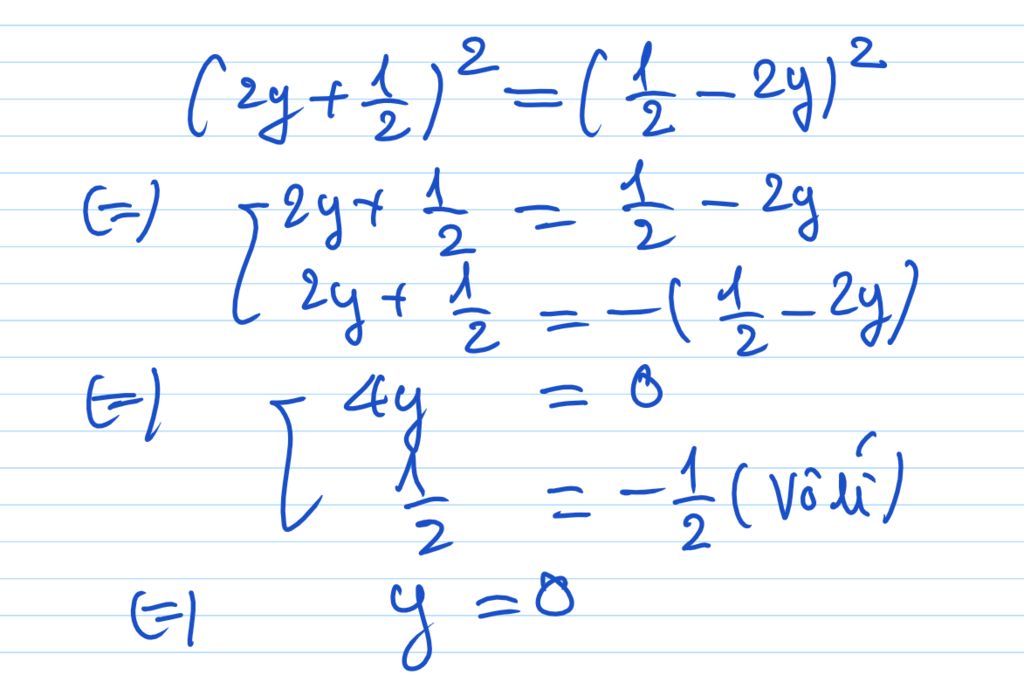 (2y + 1/2)² = (1/2 - 2y)²
(=) [ 2y + 1/2 = 1/2 - 2y
2y + 1/2 = -(1/2 - 2y)
(=) [ 4y = 0
1/2 = -1/2 (vô lí)
(=) y = 0